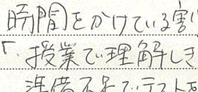 時間をかけている割に
「授業で理解しき
準備不足でテストを